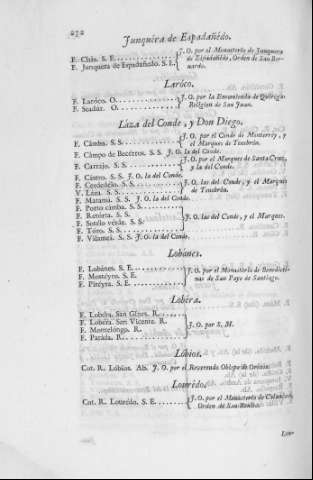 232
Junquéra de Espadañédo.
F. Chás. S. E. J. O. por el Monasterio de Junquera
F. Junquera de Espadañedo. S. E. de Espadañedo, Orden de San Bernardo.
Laróco.
F. Laróco. O. J. O. por la Encomienda de Quiroga:
F. Seadur. O. Religion de San Juan.
Láza del Conde, y Don Diego.
F. Cámba. S. S. J. O. por el Conde de Monterrey, y el Marques de Tenebrón.
F. Cámpo de Becérros. S. S. J. O. la del Conde.
F. Carrajo. S. S. J. O. por el Marques de Santa Cruz, y la del Conde.
F. Cástro. S. S. J. O. la del Conde.
F. Cerdedélo. S. S. J. O. las del Conde, y el Marques
V. Láza. S. S. de Tenebrón.
F. Matamá. S. S. J. O. la del Conde.
F. Porto camba. S. S.
F. Retórta. S. S.
F. Sotélo vérde. S. S. J. O. las del Conde, y el Marques.
F. Tóro. S. S.
F. Vilaméa. S. S. J. O. la del Conde.
Lobánes.
F. Lobánes. S. E.
F. Mosteyro. S. E. J. O. por el Monasterio de Benedictinas de San Payo de Santiago.
F. Pitéyra. S. E.
Lobéra.
F. Lobéra. San Ginés. R.
F. Lobéra. San Vicente. R.
F. Montelóngo. R. J. O. por S. M.
F. Paráda. R.
Lóbios.
Cot. R. Lóbios. Ab. J. O. por el Reverendo Obispo de Orénse.
Lourédo.
Cot. R. Lourédo. S. E. J. O. por el Monasterio de
Orden de San Benito.